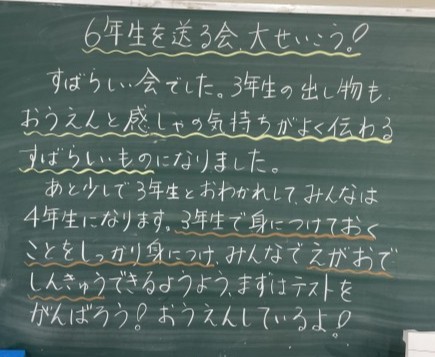 6年生を送る会、大せいこう!
すばらしい会でした。3年生の出し物も、
おうえんと感しゃの気持ちがよく伝わる
すばらしいものになりました。
あと少しで3年生とおわかれして、みんなは
4年生になります。3年生で身につけておく
ことをしっかり身につけ、みんなでえがおで
しんきゅうできるようよう、まずはテストを
がんばろう!おうえんしているよ!